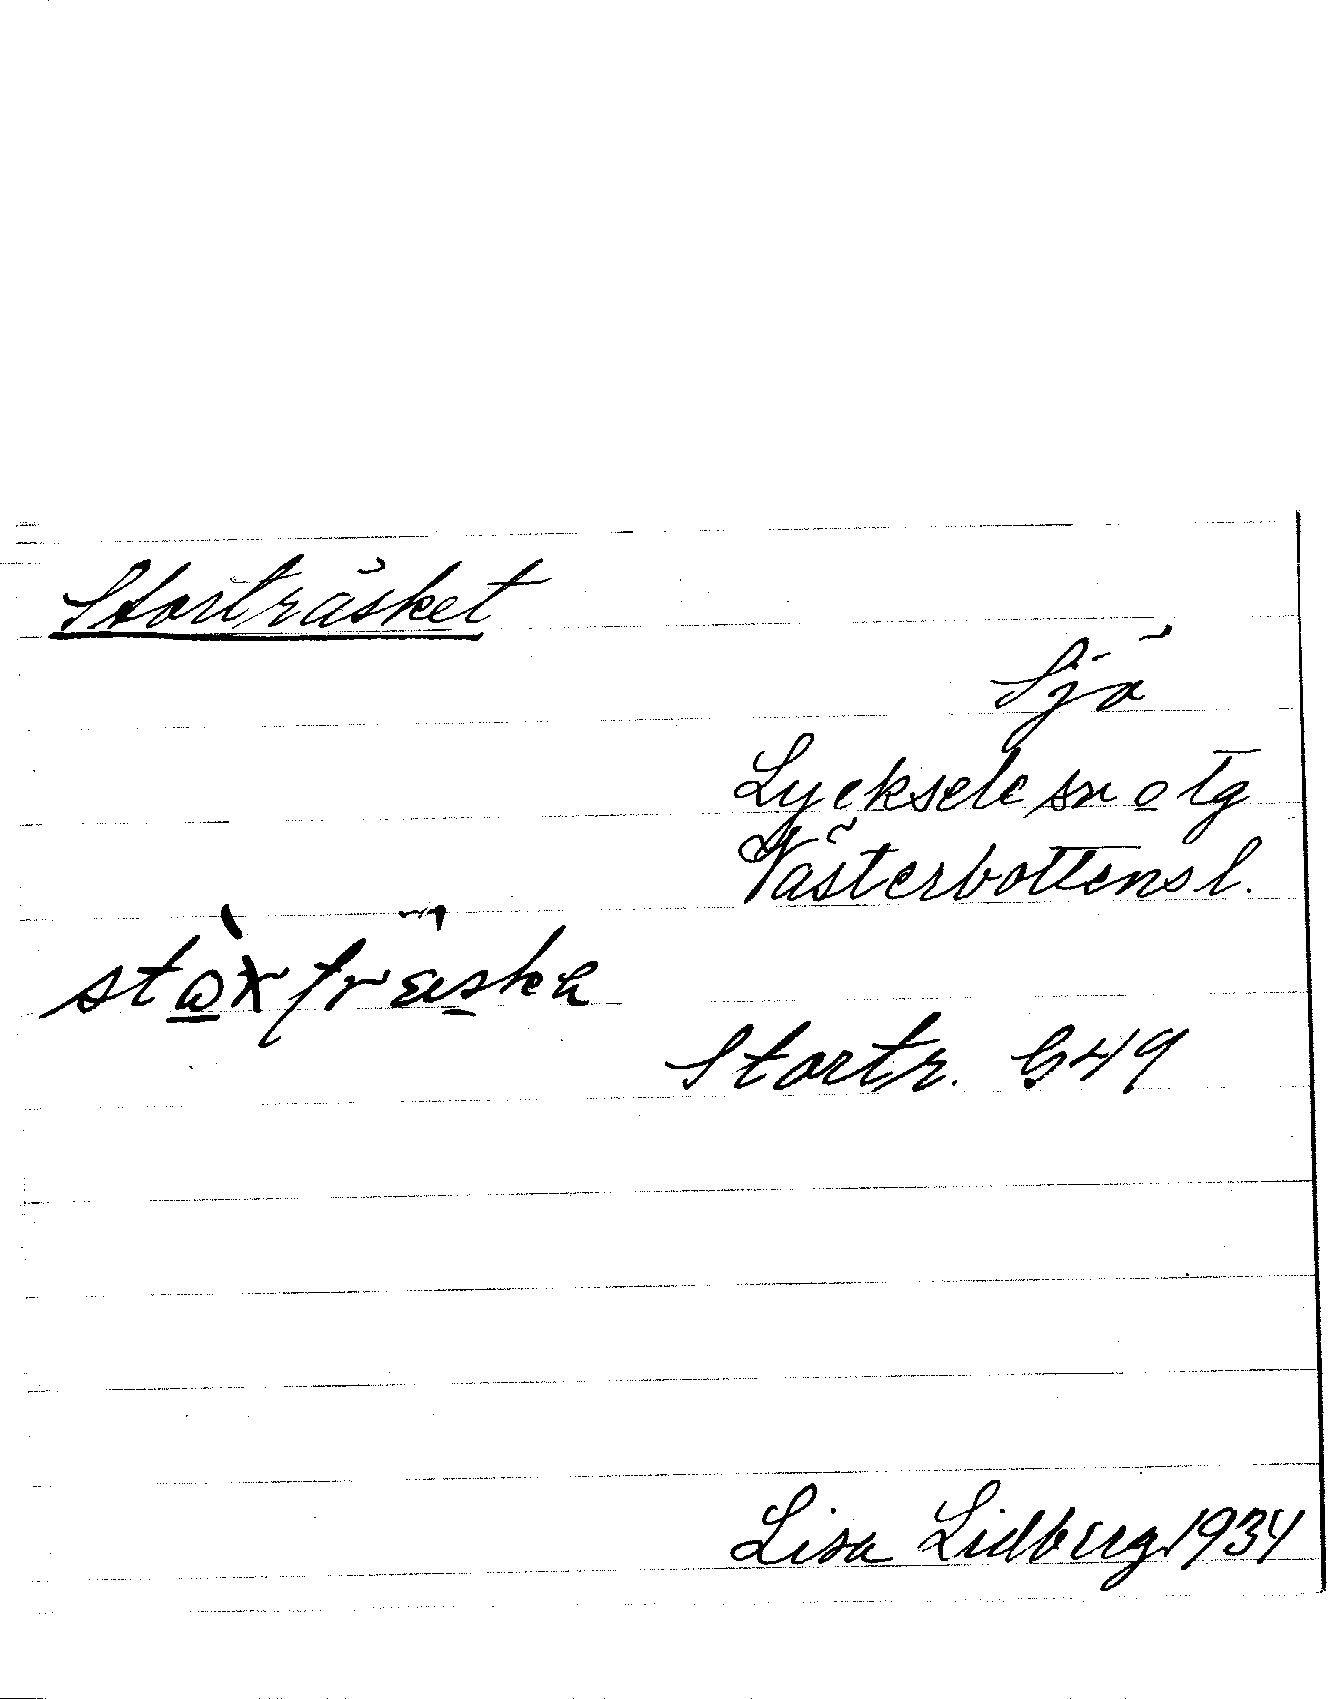 Storträsket
Sjö
Lycksele sn o tg
Västerbottens l.
Stortr. G49
Lisa Lidberg 1934